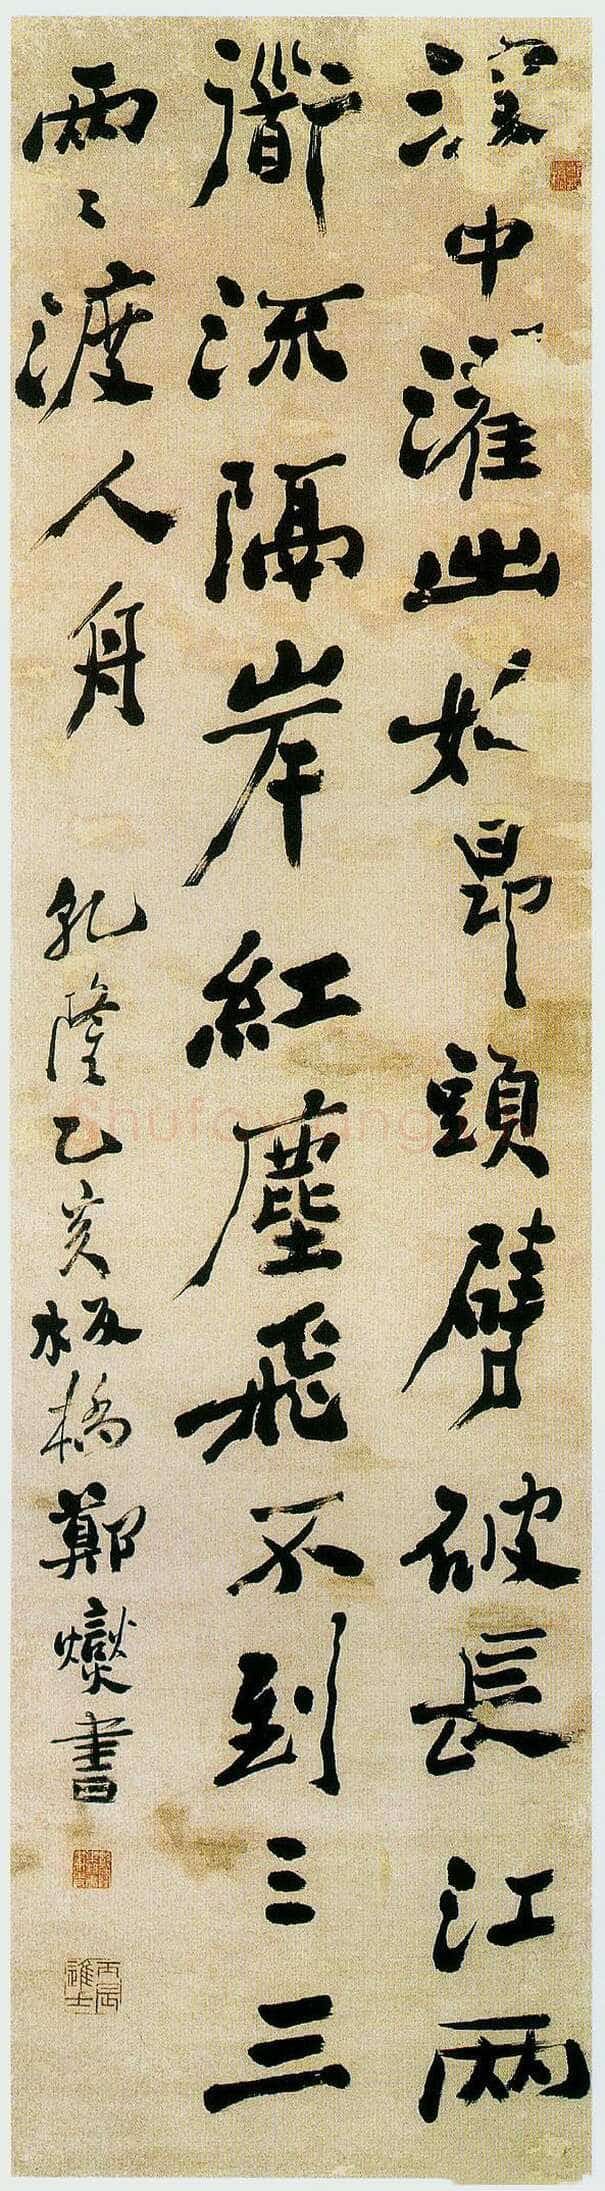 中濯出如昂頭劈破長江兩
衜流隔岸紅塵飛不到三三
兩〻渡人舟 乾隆乙亥板橋鄭燮書
丙辰進士